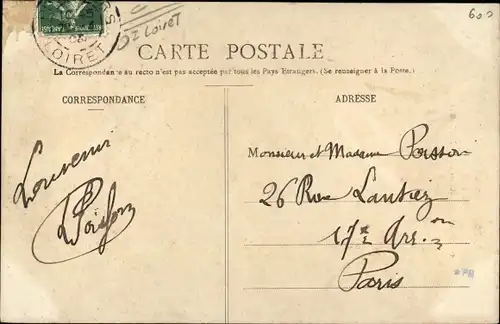 LOIRET
Dt Loiret
600
CARTE POSTALE
La Correspondance au recto n'est pas acceptée par tous les Pays Étrangers. (Se renseigner à la Poste.)
CORRESPONDANCE
ADRESSE
Souvenir
Poisson
Monsieur et Madame Poisson
26 Rue Lantiez
17e Arr.on
Paris
*PH